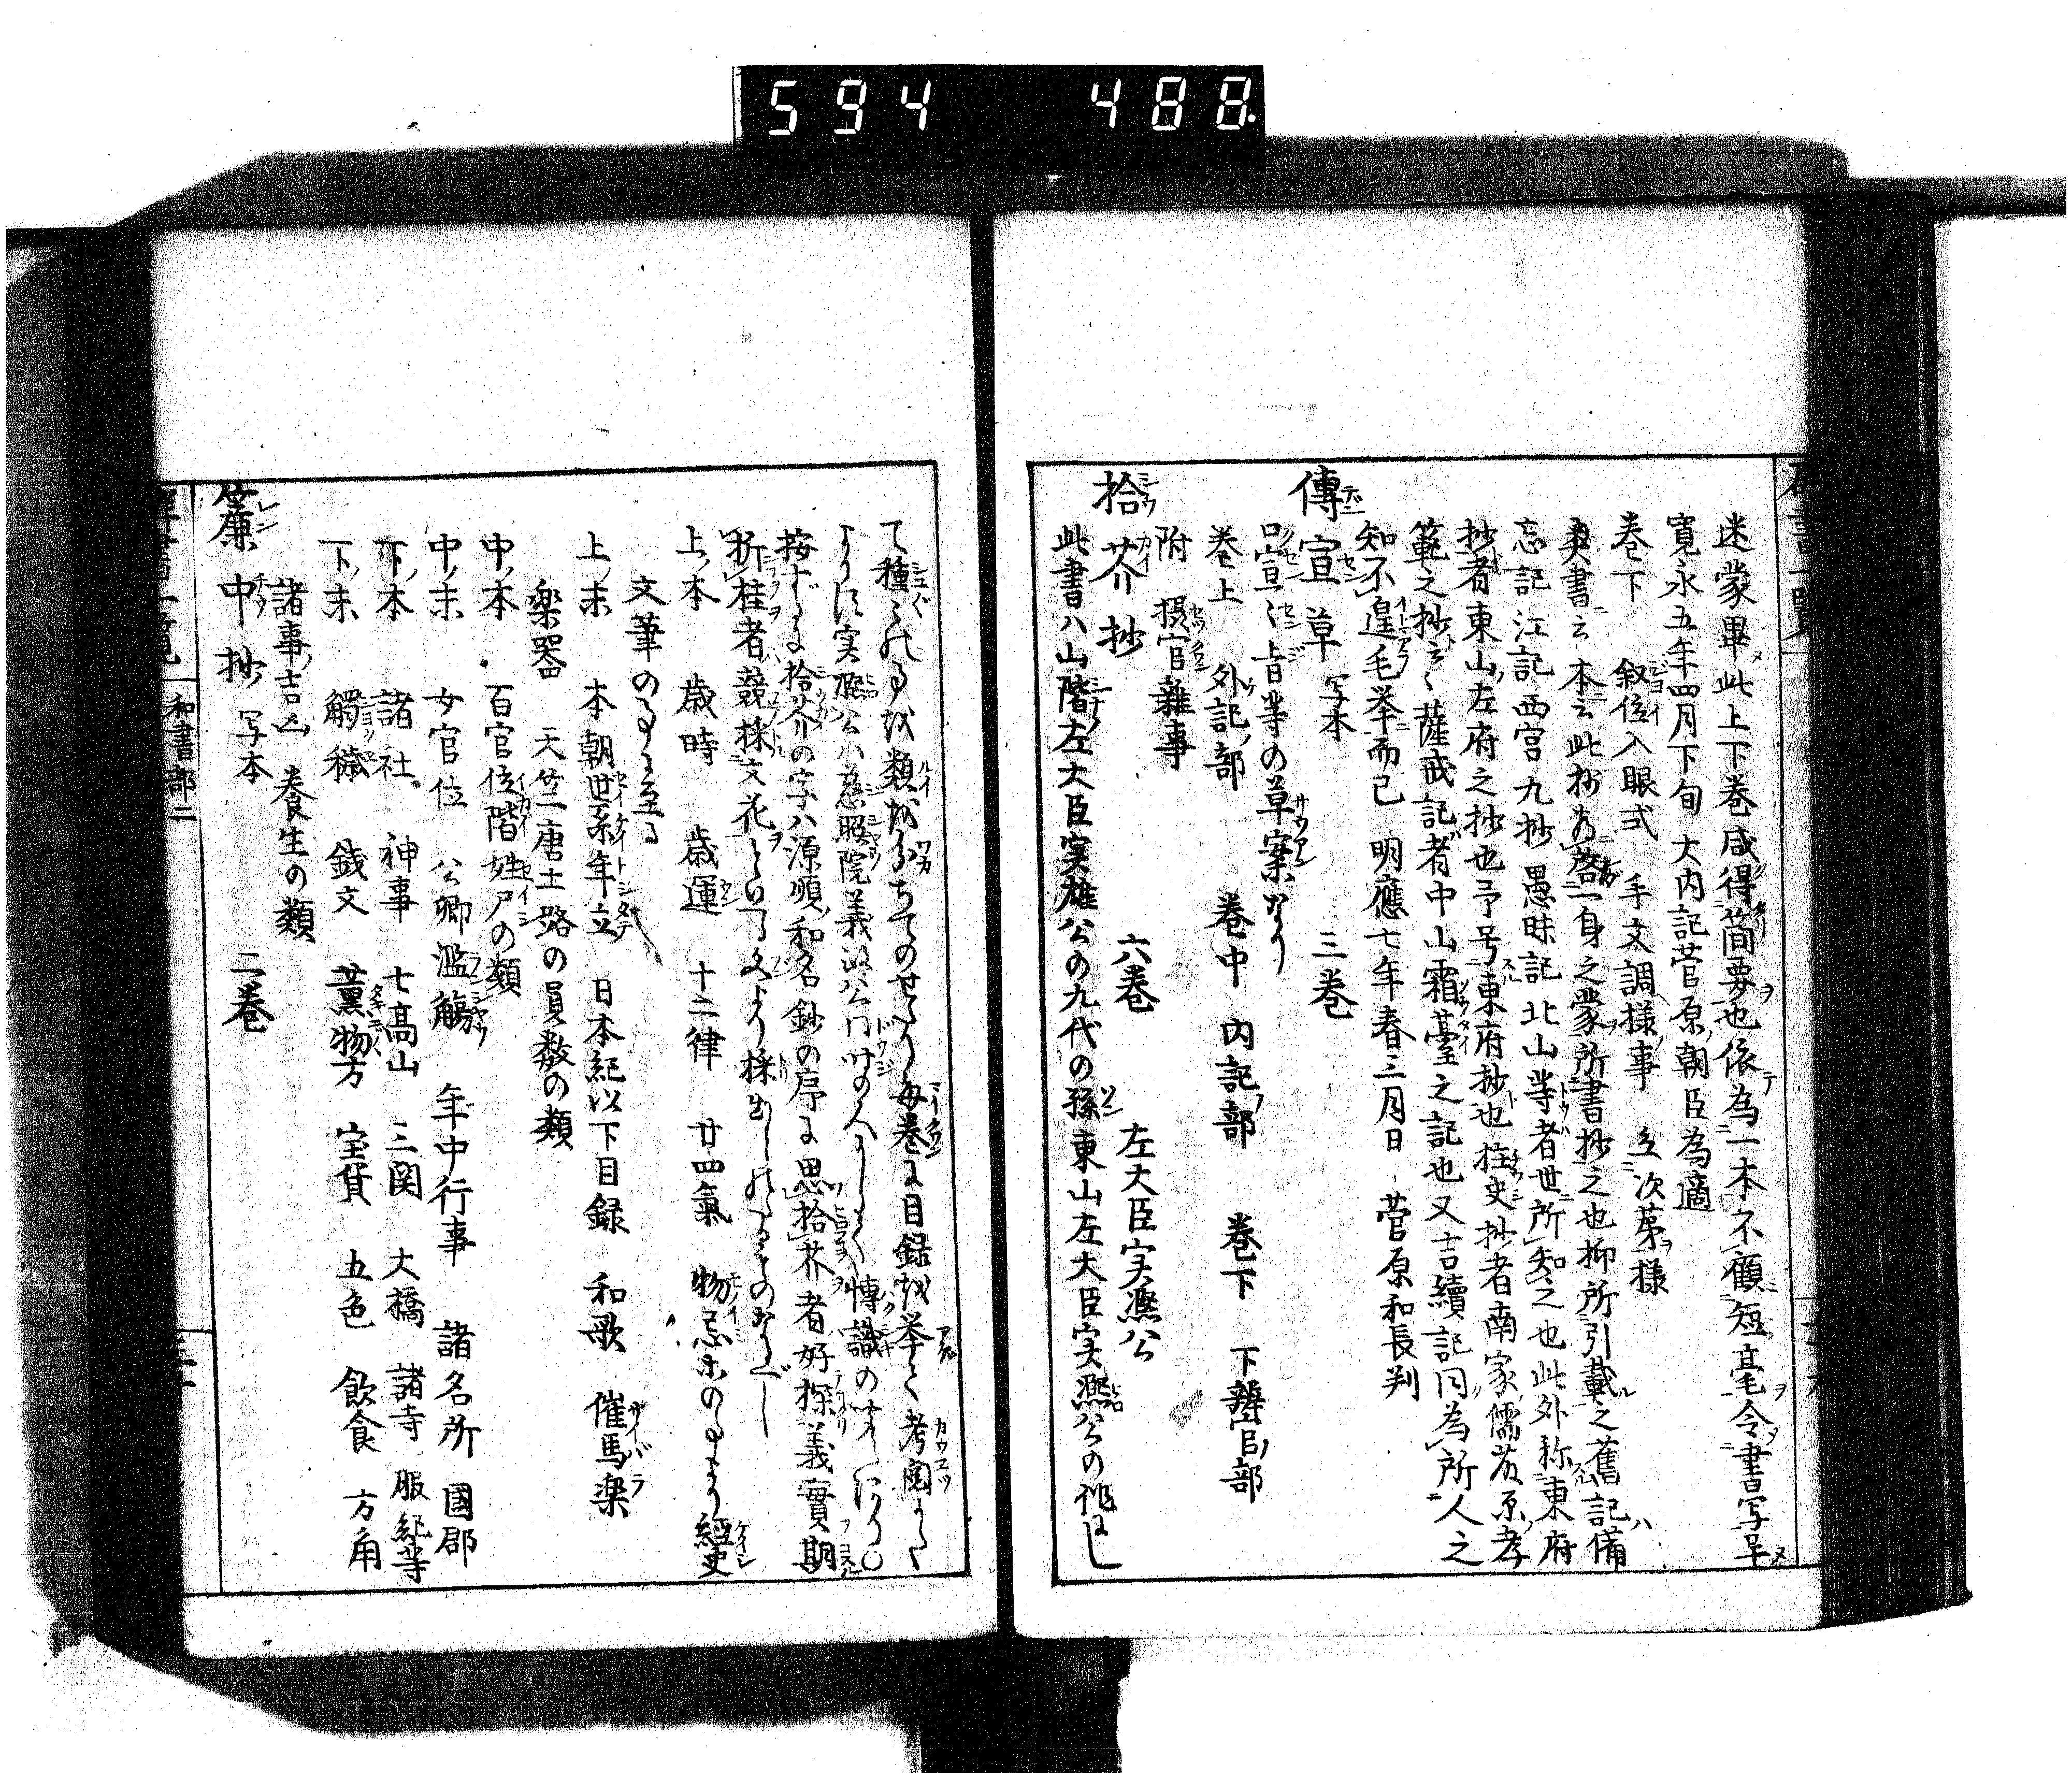 594 488
迷蒙畢此上下巻咸得簡要也依為一本不顧短毫令書写早
寛永五年四月下旬大内記菅原朝臣為適
巻下 叙位入眼式 手文調様事 次第様
奥書云本云此抄為啓一身之蒙所書抄之也抑所引載之舊記備
忘記江記西宮九抄愚昧記北山等者世所知之也此外称東府
抄者東山左府之抄也予号東府抄也柱史抄者南家儒藤原孝
範之抄云々薩戒記者中山霜臺之記也又吉續記同為所人之
知不遑毛挙而已 明應七年春三月日 菅原和長判
傳宣草 写本 三巻
口宣〻旨等の草案なり
巻上 外記部 巻中 内記部 巻下 下辨官部
附 摂官雑事
拾芥抄 六巻 左大臣実凞公
此書ハ山階左大臣実雄公の九代の孫東山左大臣実凞公の作にし
て種〻の事を類をわかちてのせたり毎巻に目録を挙て考閲
実凞公ハ慈照院義政公同時の人にして博識の〇
按ずるに拾芥の字ハ源順和名鈔の序に思拾芥者好探義實期
折桂者競採文花といへる文より採出しのなるべし
上ノ本 歳時 歳運 十二律 廿四氣 物忌等の事より經史
文筆の事に至る
上ノ末 本朝世系年立 日本紀以下目録 和歌 催馬楽
楽器 天竺唐土路の員数の類
中ノ本 百官位階姓尸の類
中ノ末 女官位 公卿濫觴 年中行事 諸名所 國郡
下ノ本 諸社 神事 七高山 三関 大橋 諸寺 服紀等
下ノ末 觸穢 銭文 薫物方 宝貨 五色 飲食 方角
諸事吉凶 養生の類
簾中抄 写本 二巻
和書部二